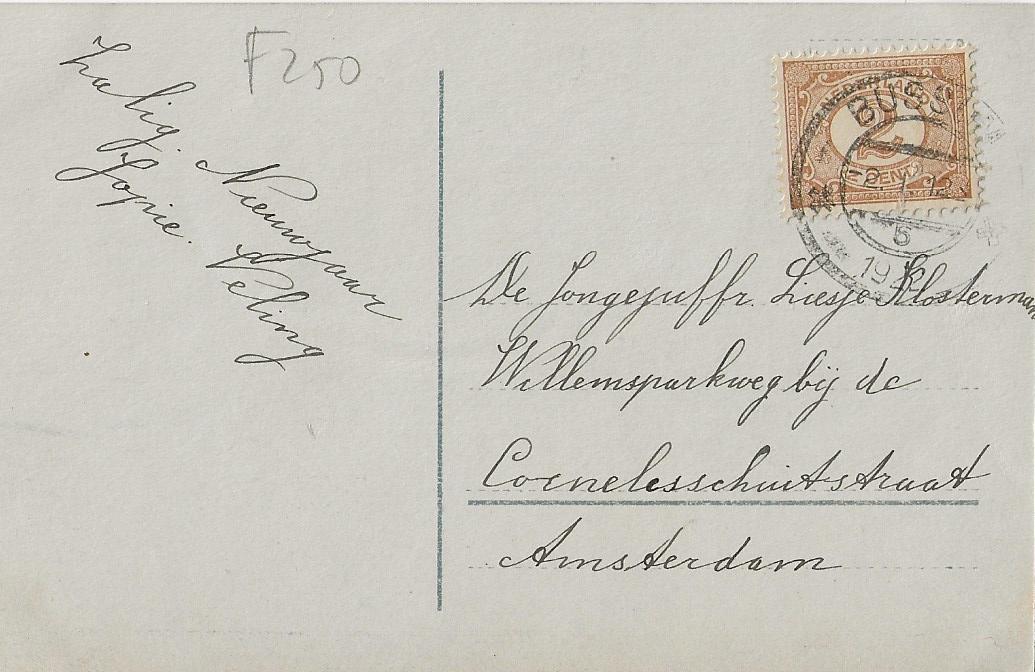 F250
Zalig Nieuwjaar
Jopie. Veling
NEDERLAND
2
CENT
BUSS
2. 1. 12
5
19
De Jongejuffr. Liesje Klosterman
Willemsparkweg bij de
Cornelesschuitstraat
Amsterdam